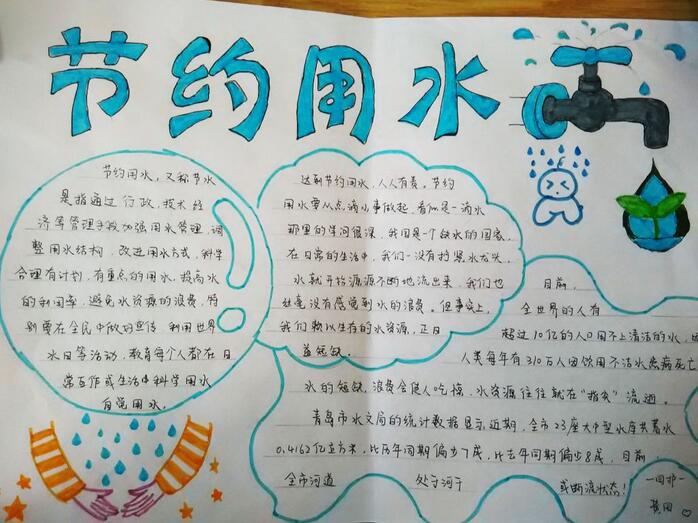 节约用水
节约用水，又称节水
是指通过行政、技术、经
济等管理手段加强用水管理，调
整用水结构，改进用水方式，科学
合理有计划，有重点的用水，提高水
的利用率，避免水资源的浪费。特
别要在全民中做好宣传，利用世界
水日等活动，教育每个人都在日
常工作或生活中科学用水
自觉用水。
达到节约用水，人人有责。节约
用水要从点滴小事做起，看似是一滴水
那里的学问很深，我国是一个缺水的国家，
在日常的生活中，我们一没有拧紧水龙头，
水就开始源源不断地流出来，我们也
丝毫没有感觉到水的浪费。但事实上，
我们赖以生存的水资源，正日
益短缺。
目前，
全世界的人有
超过10亿的人口用不上清洁的水，
人类每年有310万人因饮用不洁水患病死亡
水的短缺，浪费会使人吃惊，水资源往往就在“指尖”流逝。
青岛市水文局的统计数据显示，近期，全市23座大中型水库共蓄水
0.4162亿立方米，比历年同期偏少7成，比去年同期偏少8成，目前
全市河道 处于河干 或断流状态！